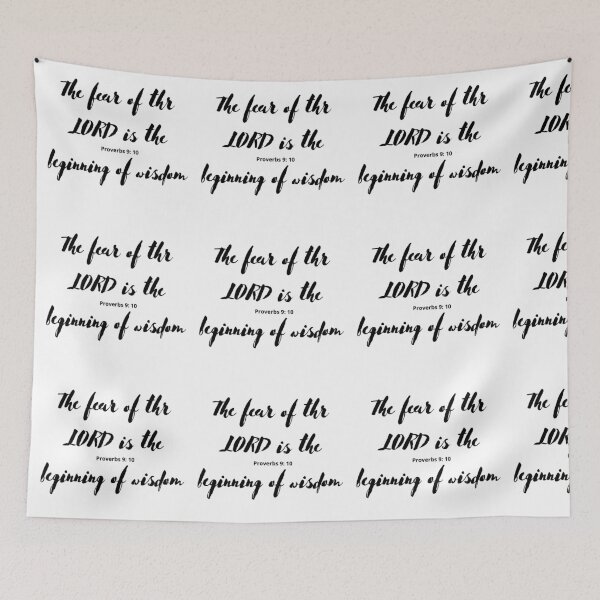 The fear of thr
LORD is the
Proverbs 9: 10
beginning of wisdom
The fear of thr
LORD is the
Proverbs 9: 10
beginning of wisdom
The fear of thr
LORD is the
Proverbs 9: 10
beginning of wisdom
The fe
LOR
beginn
The fear of thr
LORD is the
Proverbs 9: 10
beginning of wisdom
The fear of thr
LORD is the
Proverbs 9: 10
beginning of wisdom
The fear of thr
LORD is the
Proverbs 9: 10
beginning of wisdom
The fe
LOR
beginn
The fear of thr
LORD is the
Proverbs 9: 10
beginning of wisdom
The fear of thr
LORD is the
Proverbs 9: 10
beginning of wisdom
The fear of thr
LORD is the
Proverbs 9: 10
beginning of wisdom
The fe
LOR
beginn